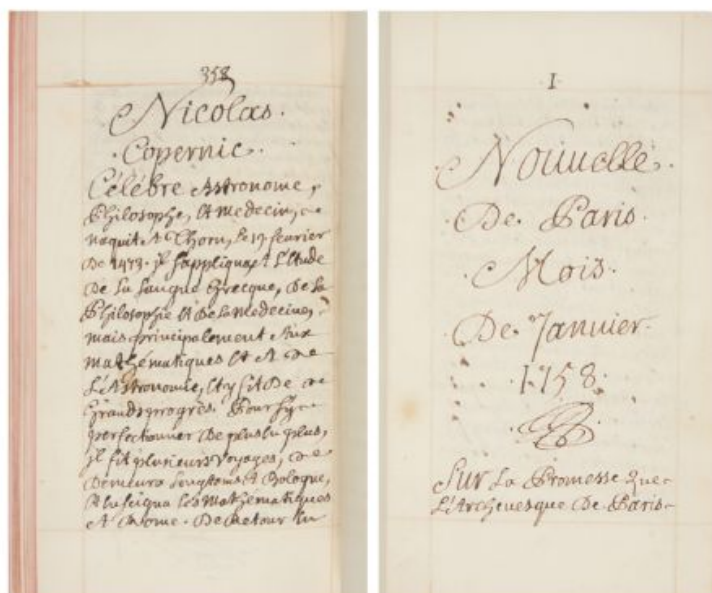 358
Nicolas.
Copernic.
Célébre Astronome,
Philosophe, et Medecin,
naquit A Thorn, le 19 fevrier
De 1473. Jl s'appliqua A L'Etude
De La Langue Grecque, De La
Philosophie et De La Medecine,
mais principalement Aux
Mathématiques et A
L'Astronomie, et y fit De
Grands progrès. Pour s'y
perfectionner De plus En plus,
Jl fit plusieurs Voyages,
Demeura Longtems A Bologne,
Enseigna Les Mathématiques
A Rome. De Retour En
I
Nouuelle.
De Paris.
Mois.
De Januier.
1758.
Sur La Promesse que
L'Archeuesque De Paris